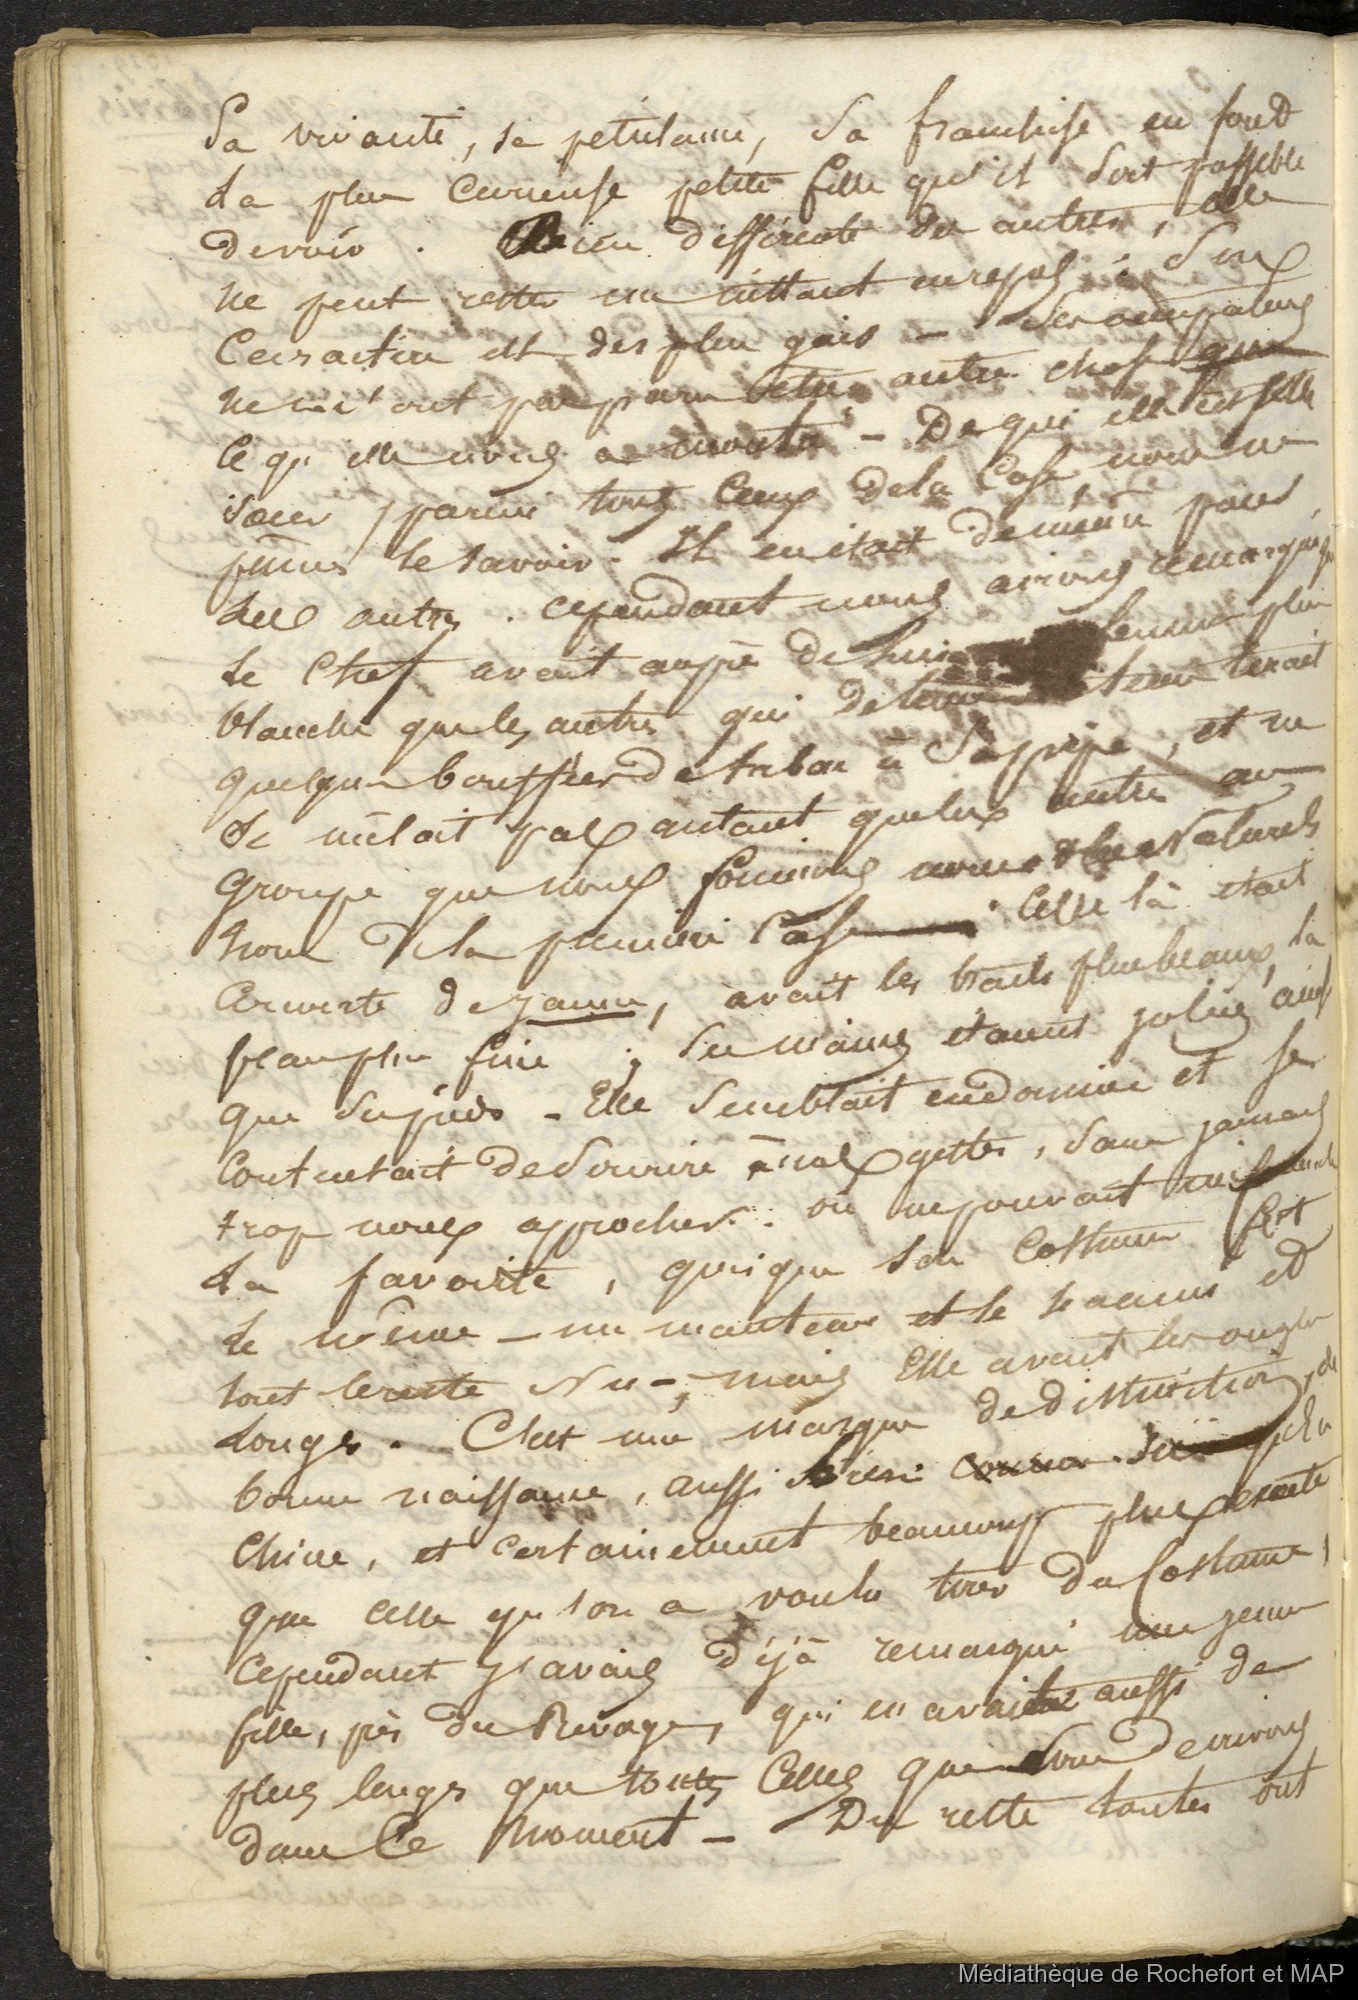 Sa vivacité, sa pétulance, Sa franchise en font
La plus Curieuse petite fille qu'il Soit possible
de voir. Bien différente des autres, elle
ne peut rester un instant en repos ; Son
Caractère est des plus gais -
ne m'ont pas paru être autre chose que
Ce qu'elle nous a montré - De qui elle est fille
Sœur parmi tous Ceux de la Case, nous ne
pûmes le savoir. Il en était de même pour
Les autres. cependant nous avions remarqué que
le Chef avait auprès de lui femme plus
blanche que les autres qui de tems tems tirait
quelques bouffées de tabac à Sa pipe, et ne
Se mêlait pas autant que les autres au
Groupe que nous formions nous & les Naturels
hors de la première Case. Celle là était
Couverte de jaune, avait les traits plus beaux, la
peau plus fine ; Ses mains étaient jolies ainsi
que Ses pieds - Elle Semblait endormie et se
Contentait de Sourire à nos gestes, Sans jamais
trop nous approcher. on ne pouvait
La favorite, quoique Son Costume fut
le même - un manteau et le maro et
tout le reste Nu -, mais Elle avait les ongles
Longs. C'est une marque de distinction, de
bonne naissance, aussi bien qu'en la
Chine, et certainement beaucoup plus exacte
que celle que l'on a voulu tirer du Costume,
Cependant j'avais déjà remarqué une jeune
fille, près du Rivage, qui en avait aussi de
plus longs que toutes Celles que nous decrivons
dans Ce moment - Du reste toutes ont
Médiathèque de Rochefort et MAP